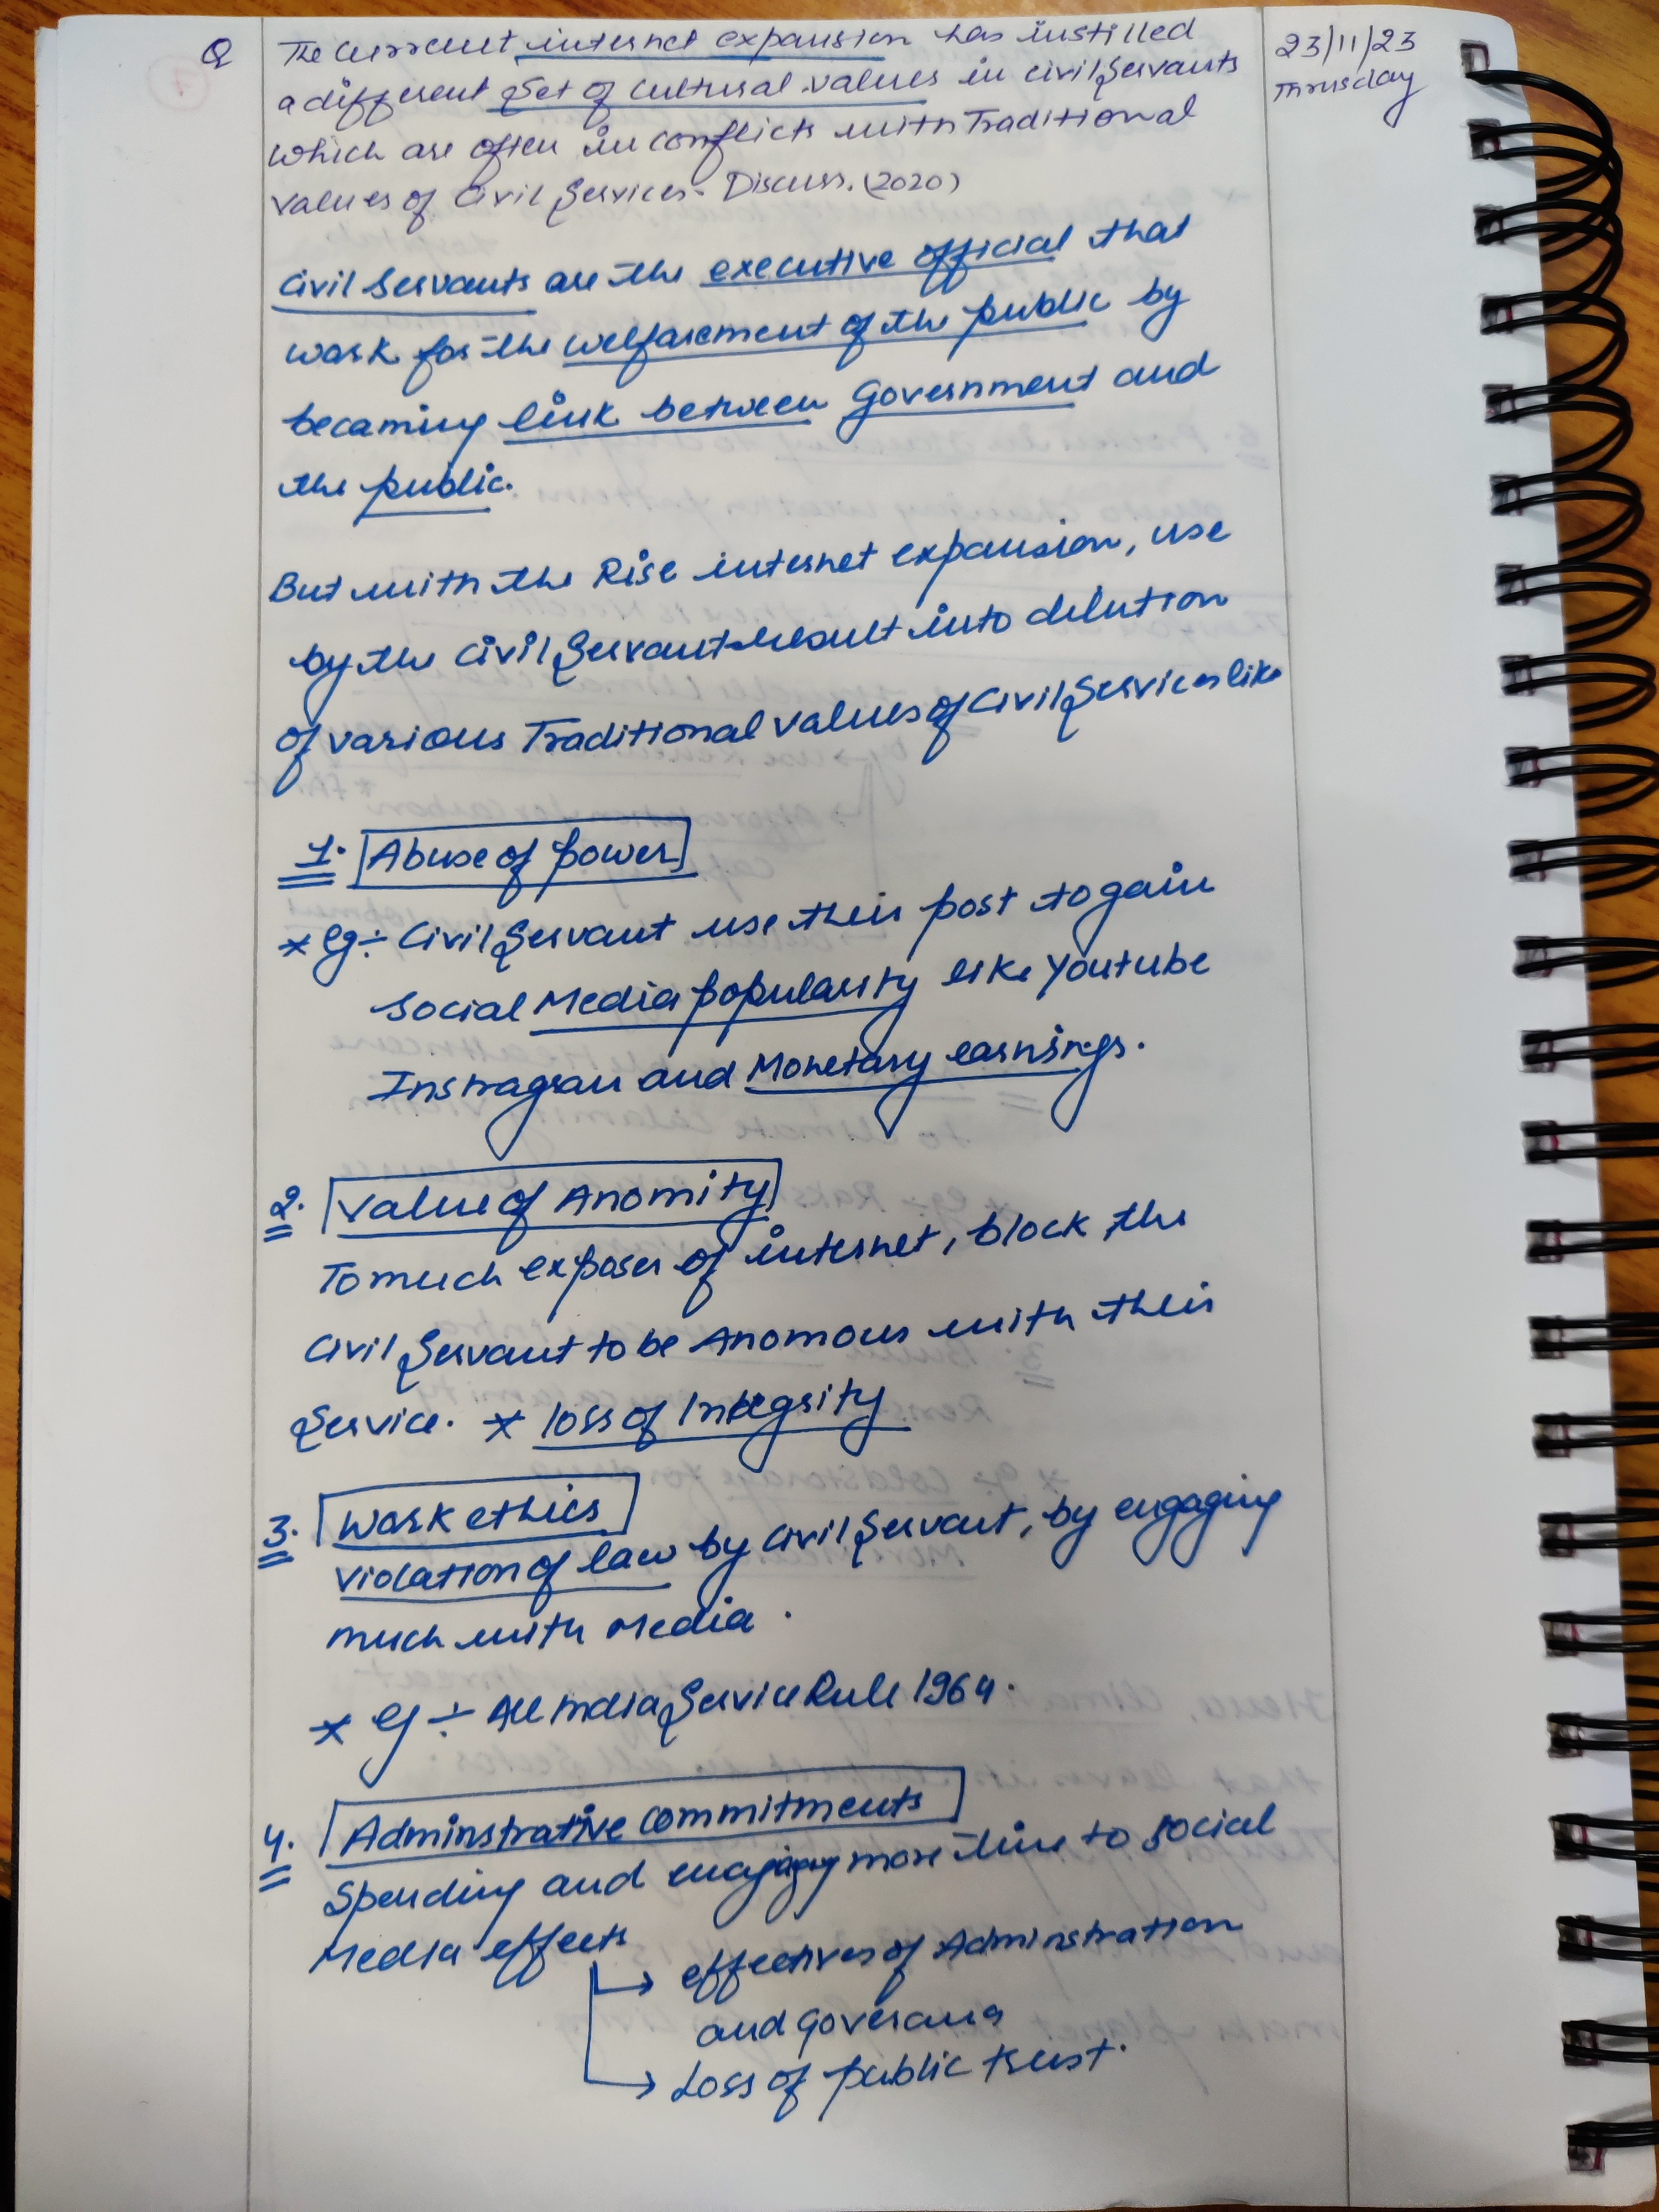 Q The current internet expansion has instilled
a different set of cultural values in civil servants
which are often in conflicts with Traditional
values of Civil Services. Discuss. (2020)
23/11/23
Thrusday
Civil Servants are the executive official that
work for the welfarement of the public by
becaming link between Government and
the public.
But with the Rise internet expansion, use
by the Civil Servant result into dilution
of various Traditional values of Civil Services like
1. Abuse of power
* Eg ÷ Civil Servant use their post to gain
Social Media popularity like Youtube
Instragram and Monetary earnings.
2. Value of Anomity
To much exposer of internet, block the
Civil Servant to be Anomous with their
Service. * loss of Integrity
3. Work ethics
violation of law by Civil Servant, by engaging
much with Media.
* Eg ÷ All India Service Rule 1964.
4. Adminstrative commitments
Spending and engaging more time to social
Media effects
→ effectives of Adminstration
and
→ Loss of public trust.